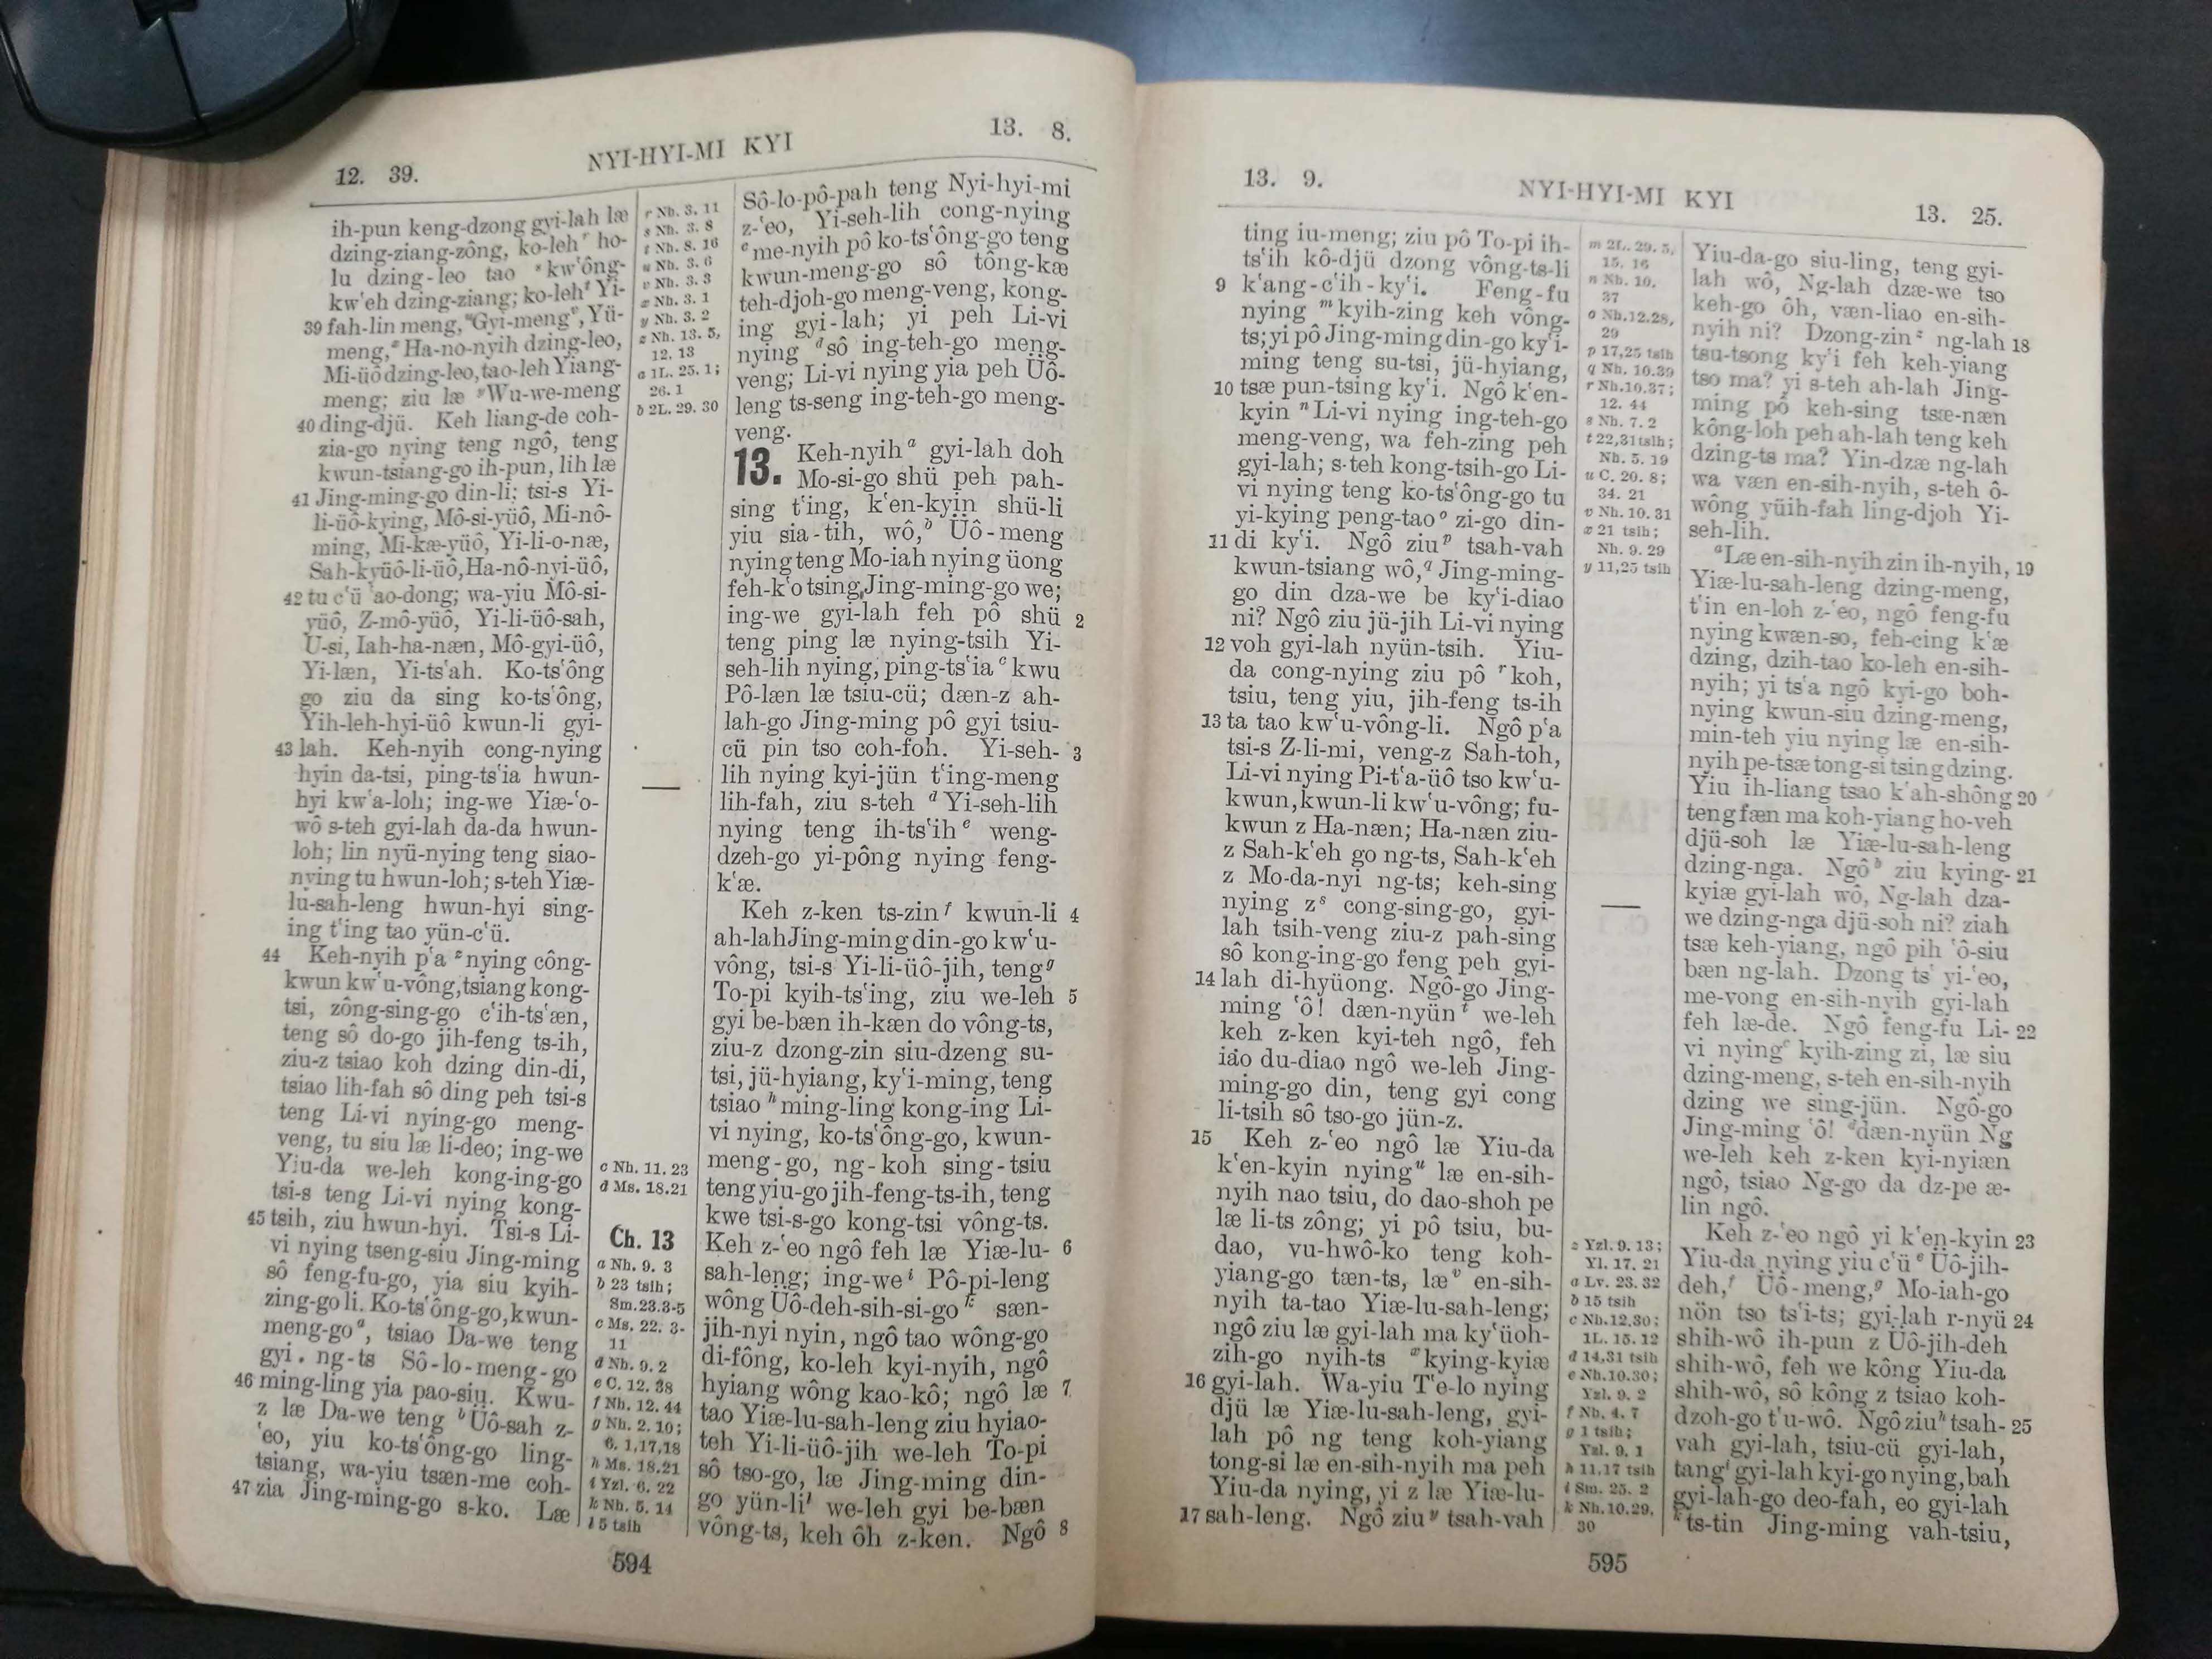 12. 39.
NYI-HYI-MI KYI
13. 8.
ih-pun keng-dzong gyi-lah læ
dzing-ziang-zông, ko-leh r ho-
lu dzing-leo tao s kw‘ông-
kw‘eh dzing-ziang; ko-leh t Yi-
39 fah-lin meng, u Gyi-meng v, Yü-
meng, x Ha-no-nyih dzing-leo,
Mi-üô dzing-leo, tao-leh Yiang-
meng; ziu læ y Wu-we-meng
40 ding-djü. Keh liang-de coh-
zia-go nying teng ngô, teng
kwun-tsiang-go ih-pun, lih læ
41 Jing-ming-go din-li; tsi-s Yi-
li-üô-kying, Mô-si-yüô, Mi-nô-
ming, Mi-kæ-yüô, Yi-li-o-næ,
Sah-kyüô-li-üô, Ha-nô-nyi-üô,
42 tu c‘ü ‘ao-dong; wa-yiu Mô-si-
yüô, Z-mô-yüô, Yi-li-üô-sah,
U-si, Iah-ha-næn, Mô-gyi-üô,
Yi-læn, Yi-ts‘ah. Ko-ts‘ông
go ziu da sing ko-ts‘ông,
Yih-leh-hyi-üô kwun-li gyi-
43 lah. Keh-nyih cong-nying
hyin da-tsi, ping-ts‘ia hwun-
hyi kw‘a-loh; ing-we Yiæ-‘o-
wô s-teh gyi-lah da-da hwun-
loh; lin nyü-nying teng siao-
nying tu hwun-loh; s-teh Yiæ-
lu-sah-leng hwun-hyi sing-
ing t‘ing tao yün-c‘ü.
44 Keh-nyih p‘a z nying công-
kwun kw‘u-vông, tsiang kong-
tsi, zông-sing-go c‘ih-ts‘æn,
teng sô do-go jih-feng ts-ih,
ziu-z tsiao koh dzing din-di,
tsiao lih-fah sô ding peh tsi-s
teng Li-vi nying-go meng-
veng, tu siu læ li-deo; ing-we
Yiu-da we-leh kong-ing-go
tsi-s teng Li-vi nying kong-
45 tsih, ziu hwun-hyi. Tsi-s Li-
vi nying tseng-siu Jing-ming
sô feng-fu-go, yia siu kyih-
zing-go li. Ko-ts‘ông-go, kwun-
meng-go a, tsiao Da-we teng
gyi. ng-ts Sô-lo-meng-go
46 ming-ling yia pao-siu. Kwu-
z læ Da-we teng b Üô-sah z-
‘eo, yiu ko-ts‘ông-go ling-
tsiang, wa-yiu tsæn-me coh-
47 zia Jing-ming-go s-ko. Læ
r Nh. 3. 11
s Nh. 3. 8
t Nh. 8. 16
u Nh. 3. 6
v Nh. 3. 3
x Nh. 3. 1
y Nh. 3. 2
z Nh. 13. 5,
12. 13
a 1L. 25. 1;
26. 1
b 2L. 29. 30
c Nh. 11. 23
d Ms. 18.21
Ch. 13
a Nh. 9. 3
b 23 tsih;
Sm.23.3-5
c Ms. 22. 3-
11
d Nh. 9. 2
e C. 12. 38
f Nh. 12. 44
g Nh. 2. 10;
6. 1,17,18
h Ms. 18.21
i Yzl. 6. 22
k Nh. 5. 14
l 5 tsih
Sô-lo-pô-pah teng Nyi-hyi-mi
z-‘eo, Yi-seh-lih cong-nying
c me-nyih pô ko-ts‘ông-go teng
kwun-meng-go sô tông-kæ
teh-djoh-go meng-veng, kong-
ing gyi-lah; yi peh Li-vi
nying d sô ing-teh-go meng-
veng; Li-vi nying yia peh Üô-
leng ts-seng ing-teh-go meng-
veng.
13. Keh-nyih a gyi-lah doh
Mo-si-go shü peh pah-
sing t‘ing, k‘en-kyin shü-li
yiu sia-tih, wô, b Üô-meng
nying teng Mo-iah nying üong
feh-k‘o tsing Jing-ming-go we;
ing-we gyi-lah feh pô shü 2
teng ping læ nying-tsih Yi-
seh-lih nying, ping-ts‘ia c kwu
Pô-læn læ tsiu-cü; dæn-z ah-
lah-go Jing-ming pô gyi tsiu-
cü pin tso coh-foh. Yi-seh- 3
lih nying kyi-jün t‘ing-meng
lih-fah, ziu s-teh d Yi-seh-lih
nying teng ih-ts‘ih e weng-
dzeh-go yi-pông nying feng-
k‘æ.
Keh z-ken ts-zin f kwun-li 4
ah-lah Jing-ming din-go kw‘u-
vông, tsi-s Yi-li-üô-jih, teng g
To-pi kyih-ts‘ing, ziu we-leh 5
gyi be-bæn ih-kæn do vông-ts,
ziu-z dzong-zin siu-dzeng su-
tsi, jü-hyiang, ky‘i-ming, teng
tsiao h ming-ling kong-ing Li-
vi nying, ko-ts‘ông-go, kwun-
meng-go, ng-koh sing-tsiu
teng yiu-go jih-feng-ts-ih, teng
kwe tsi-s-go kong-tsi vông-ts.
Keh z-‘eo ngô feh læ Yiæ-lu- 6
sah-leng; ing-we i Pô-pi-leng
wông Üô-deh-sih-si-go k sæn-
jih-nyi nyin, ngô tao wông-go
di-fông, ko-leh kyi-nyih, ngô
hyiang wông kao-kô; ngô læ 7
tao Yiæ-lu-sah-leng ziu hyiao-
teh Yi-li-üô-jih we-leh To-pi
sô tso-go, læ Jing-ming din-
go yün-li l we-leh gyi be-bæn
vông-ts, keh ôh z-ken. Ngô 8
594
13. 9.
NYI-HYI-MI KYI
13. 25.
ting iu-meng; ziu pô To-pi ih-
ts‘ih kô-djü dzong vông-ts-li
9 k‘ang-c‘ih-ky‘i. Feng-fu
nying m kyih-zing keh vông-
ts; yi pô Jing-ming din-go ky‘i-
ming teng su-tsi, jü-hyiang,
10 tsæ pun-tsing ky‘i. Ngô k‘en-
kyin n Li-vi nying ing-teh-go
meng-veng, wa feh-zing peh
gyi-lah; s-teh kong-tsih-go Li-
vi nying teng ko-ts‘ông-go tu
yi-kying peng-tao o zi-go din-
11 di ky‘i. Ngô ziu p tsah-vah
kwun-tsiang wô, q Jing-ming-
go din dza-we be ky‘i-diao
ni? Ngô ziu jü-jih Li-vi nying
12 voh gyi-lah nyün-tsih. Yiu-
da cong-nying ziu pô r koh,
tsiu, teng yiu, jih-feng ts-ih
13 ta tao kw‘u-vông-li. Ngô p‘a
tsi-s Z-li-mi, veng-z Sah-toh,
Li-vi nying Pi-t‘a-üô tso kw‘u-
kwun, kwun-li kw‘u-vông; fu-
kwun z Ha-næn; Ha-næn ziu-
z Sah-k‘eh go ng-ts, Sah-k‘eh
z Mo-da-nyi ng-ts; keh-sing
nying z s cong-sing-go, gyi-
lah tsih-veng ziu-z pah-sing
sô kong-ing-go feng peh gyi-
14 lah di-hyüong. Ngô-go Jing-
ming ‘ô! dæn-nyün t we-leh
keh z-ken kyi-teh ngô, feh
iao du-diao ngô we-leh Jing-
ming-go din, teng gyi cong
li-tsih sô tso-go jün-z.
15 Keh z-‘eo ngô læ Yiu-da
k‘en-kyin nying u læ en-sih-
nyih nao tsiu, do dao-shoh pe
læ li-ts zông; yi pô tsiu, bu-
dao, vu-hwô-ko teng koh-
yiang-go tæn-ts, læ v en-sih-
nyih ta-tao Yiæ-lu-sah-leng;
ngô ziu læ gyi-lah ma ky‘üoh-
zih-go nyih-ts x kying-kyiæ
16 gyi-lah. Wa-yiu T‘e-lo nying
djü læ Yiæ-lu-sah-leng, gyi-
lah pô ng teng koh-yiang
tong-si læ en-sih-nyih ma peh
Yiu-da nying, yi z læ Yiæ-lu-
17 sah-leng. Ngô ziu y tsah-vah
m 2L. 29. 5,
15. 16
n Nh. 10.
37
o Nh.12.28,
29
p 17,25 tsih
q Nh. 10.39
r Nh.10.37;
12. 44
s Nh. 7. 2
t 22,31 tsih;
Nh. 5. 19
u C. 20. 8;
34. 21
v Nh. 10. 31
x 21 tsih;
Nh. 9. 29
y 11,25 tsih
z Yzl. 9. 13;
Yl. 17. 21
a Lv. 23. 32
b 15 tsih
c Nh.12.30;
1L. 15. 12
d 14,31 tsih
e Nh.10.30;
Yzl. 9. 2
f Nh. 4. 7
g 1 tsih;
Yzl. 9. 1
h 11,17 tsih
i Sm. 25. 2
k Nh.10.29,
30
Yiu-da-go siu-ling, teng gyi-
lah wô, Ng-lah dzæ-we tso
keh-go ôh, væn-liao en-sih-
nyih ni? Dzong-zin z ng-lah 18
tsu-tsong ky‘i feh keh-yiang
tso ma? yi s-teh ah-lah Jing-
ming pô keh-sing tsæ-næn
kông-loh peh ah-lah teng keh
dzing-ts ma? Yin-dzæ ng-lah
wa væn en-sih-nyih, s-teh ô-
wông yüih-fah ling-djoh Yi-
seh-lih.
a Læ en-sih-nyih zin ih-nyih, 19
Yiæ-lu-sah-leng dzing-meng,
t‘in en-loh z-‘eo, ngô feng-fu
nying kwæn-so, feh-cing k‘æ
dzing, dzih-tao ko-leh en-sih-
nyih; yi ts‘a ngô kyi-go boh-
nying kwun-siu dzing-meng,
min-teh yiu nying læ en-sih-
nyih pe-tsæ tong-si tsing dzing.
Yiu ih-liang tsao k‘ah-shông 20
teng fæn ma koh-yiang ho-veh
djü-soh læ Yiæ-lu-sah-leng
dzing-nga. Ngô b ziu kying- 21
kyiæ gyi-lah wô, Ng-lah dza-
we dzing-nga djü-soh ni? ziah
tsæ keh-yiang, ngô pih ‘ô-siu
bæn ng-lah. Dzong ts‘ yi-‘eo,
me-vong en-sih-nyih gyi-lah
feh læ-de. Ngô feng-fu Li- 22
vi nying c kyih-zing zi, læ siu
dzing-meng, s-teh en-sih-nyih
dzing we sing-jün. Ngô-go
Jing-ming ‘ô! d dæn-nyün Ng
we-leh keh z-ken kyi-nyiæn
ngô, tsiao Ng-go da dz-pe æ-
lin ngô.
Keh z-‘eo ngô yi k‘en-kyin 23
Yiu-da nying yiu c‘ü e Üô-jih-
deh, f Üô-meng, g Mo-iah-go
nön tso ts‘i-ts; gyi-lah r-nyü 24
shih-wô ih-pun z Üô-jih-deh
shih-wô, feh we kông Yiu-da
shih-wô, sô kông z tsiao koh-
dzoh-go t‘u-wô. Ngô ziu h tsah- 25
vah gyi-lah, tsiu-cü gyi-lah,
tang i gyi-lah kyi-go nying, bah
gyi-lah-go deo-fah, eo gyi-lah
k ts-tin Jing-ming vah-tsiu,
595